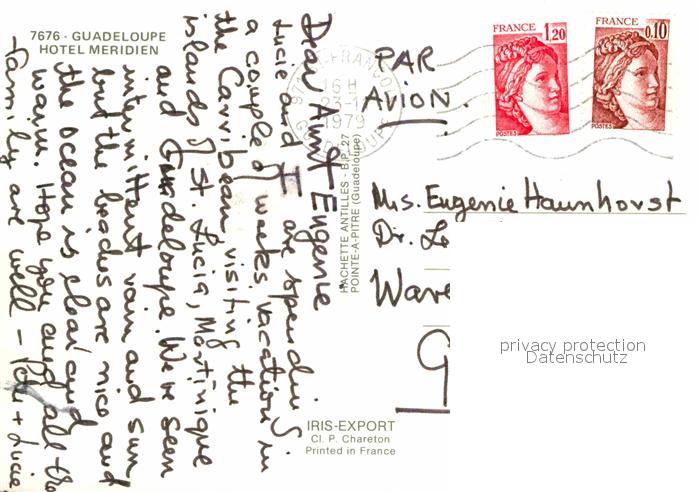 7676 - GUADELOUPE
HOTEL MERIDIEN
Dear Aunt Eugenie,
Lucie and I are spending
a couple of weeks vacation in
the Carribean visiting the
islands of St. Lucia, Martinique
and Guadeloupe. We've seen
intermittent rain and sun
but the beaches are nice and
the ocean is clear and
warm. Hope you and all the
family are well - Pete + Lucie
HACHETTE ANTILLES - B.P. 27
POINTE-A-PITRE (Guadeloupe)
IRIS-EXPORT
Cl. P. Chareton
Printed in France
16 H
23-1
1979
GUADELOUPE
FRANCE
1,20
POSTES
FRANCE
0,10
POSTES
PAR
AVION.
Ms. Eugenie Haunhorst
Dr. Le
Ware
G
privacy protection
Datenschutz